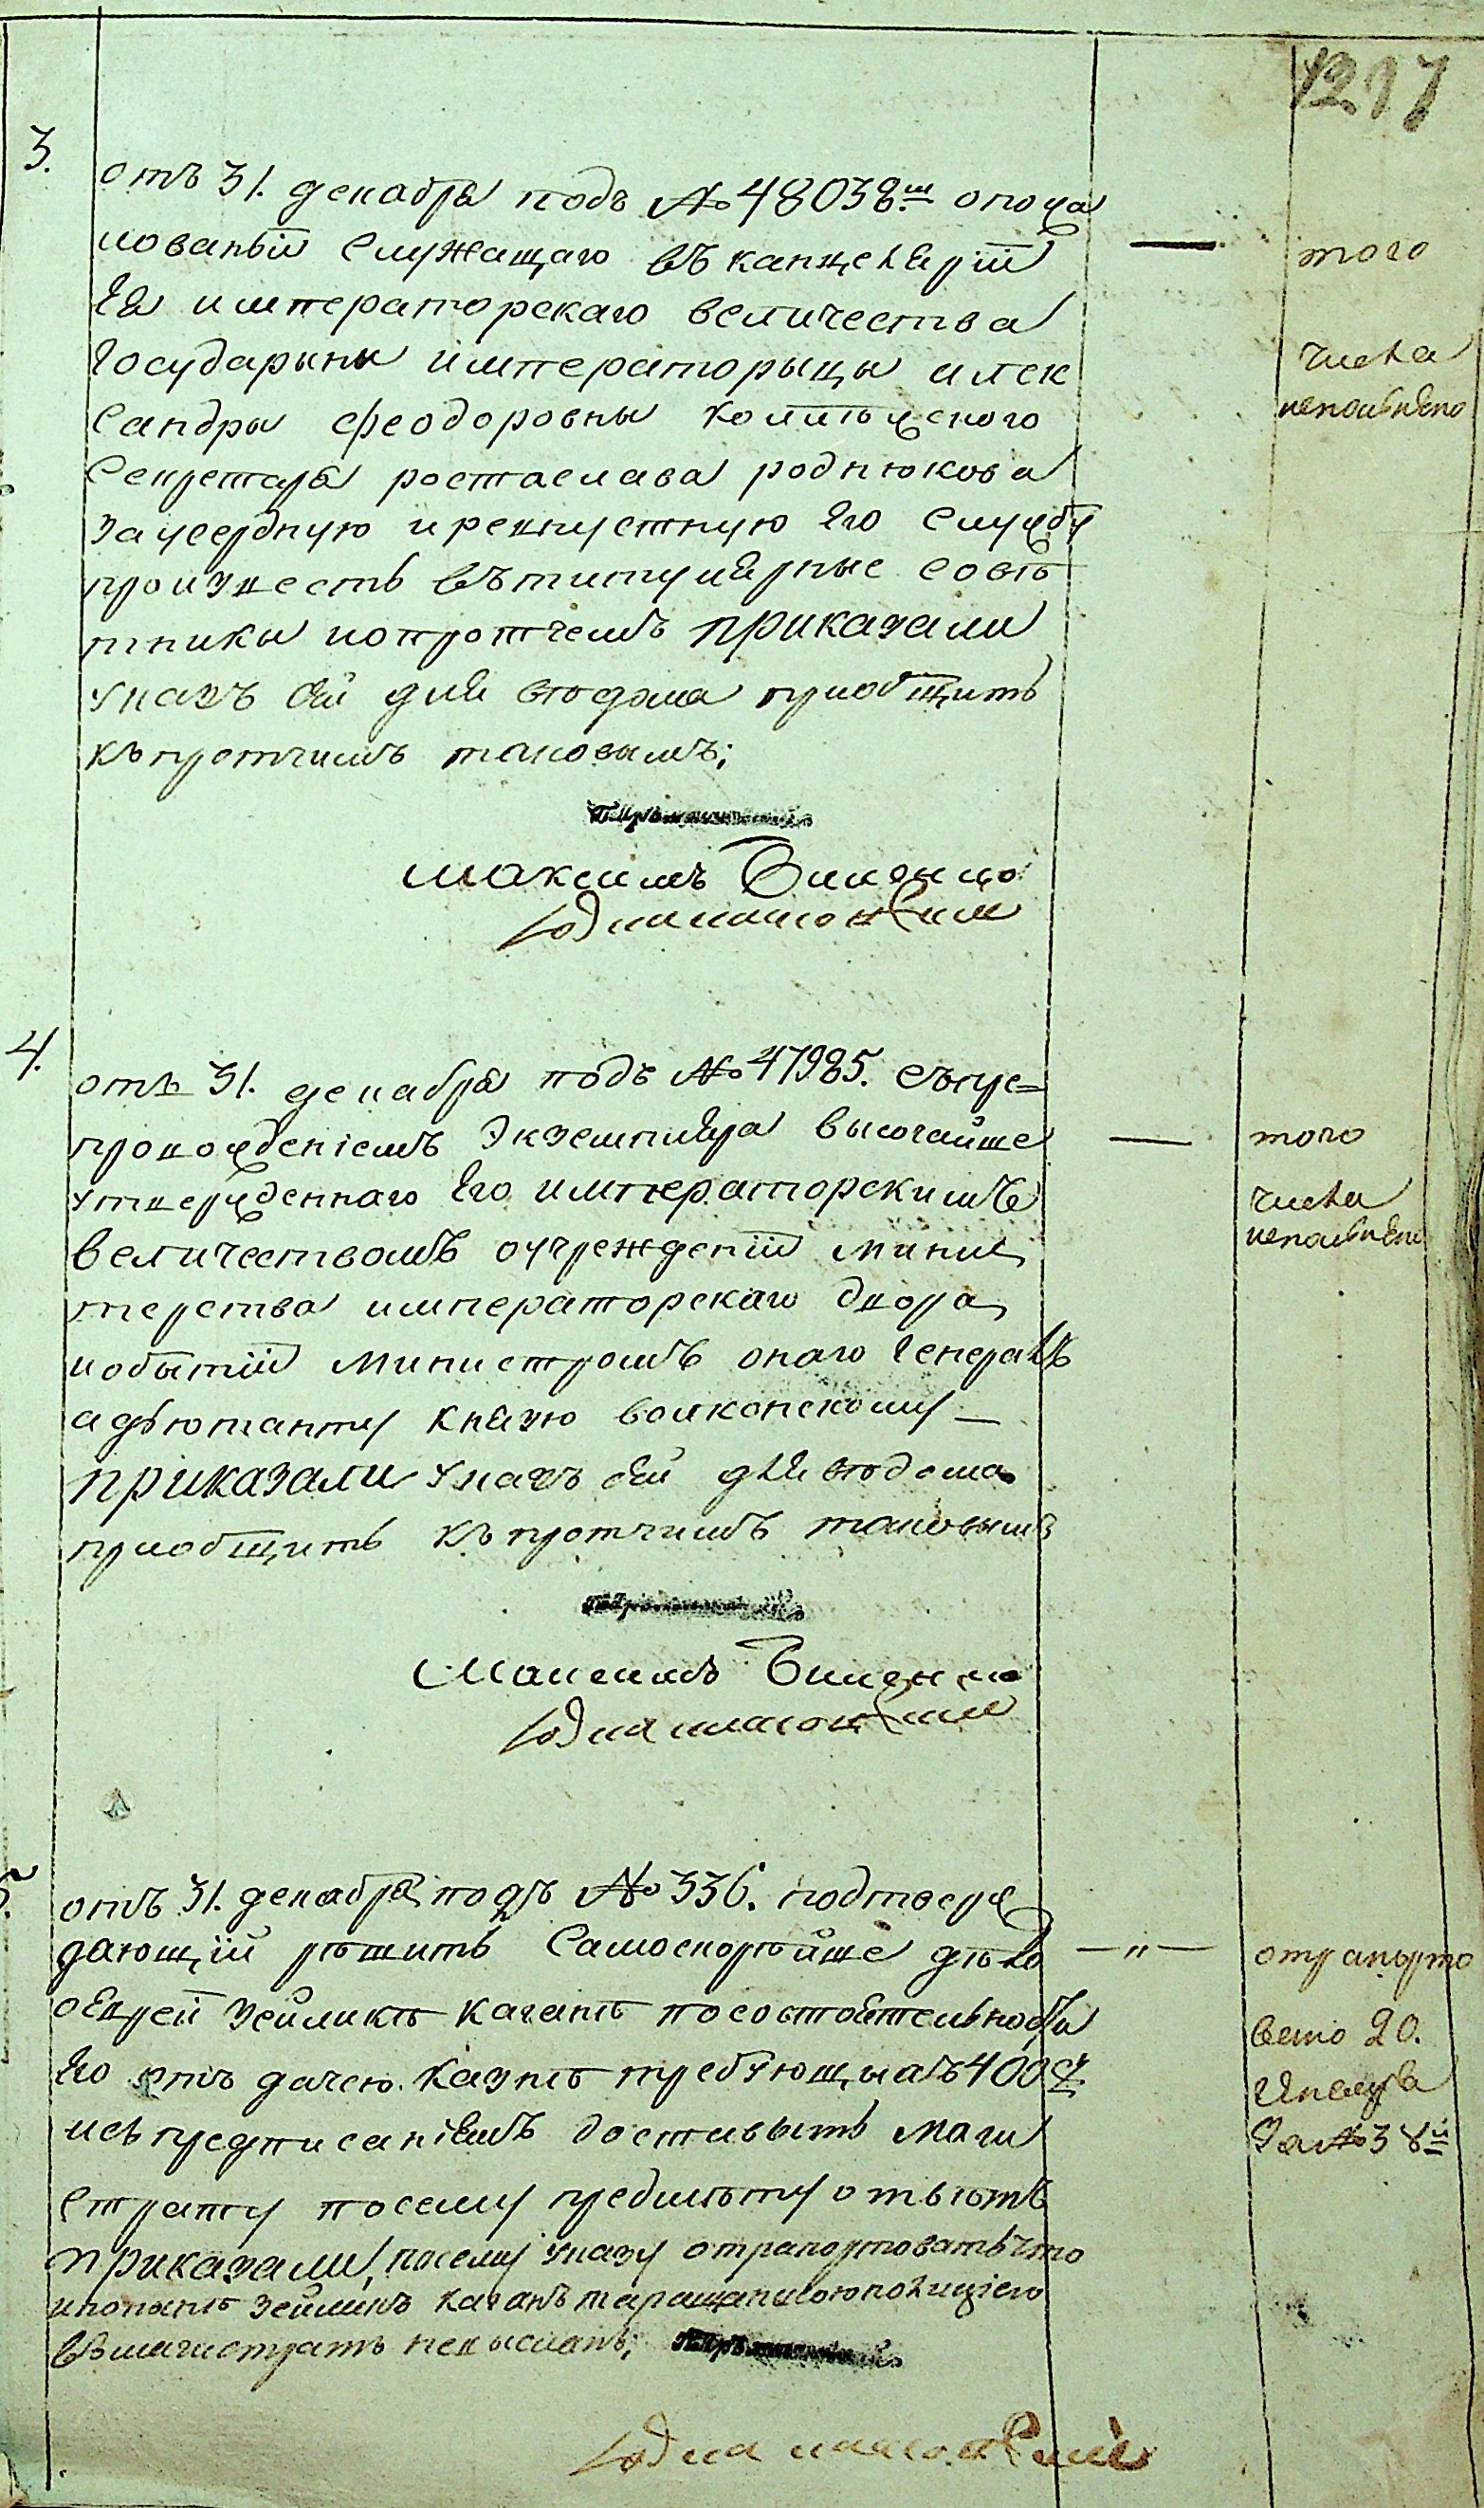 3.
отъ 31. декабря подъ № 48038.мъ о пожа
лованьй служащаго въ канцелярій
Ея императорскаго величества
Государыни императорыцы алек
сандры феодоровны коллежского
секретаря ростаслава роднюкова
за усердную и ревнустную Его службу
произвесть въ титулярные совѣ
тники и о протчемъ приказали
указъ сей для вѣдома приобщить
къ протчимъ таковымъ;
максимъ
того
числа
исполнено
4.
отъ 31. декабря подъ № 47985. съ пре=
провожденіемъ экземпляра высочайше
утвержденнаго Его императорскимъ
величествомъ оучрежденій минис
терства императорскаго двора,
и обытій министромъ онаго Генералъ
адъютанту князю волконскому —
приказали указъ сей для вѣдома
приобщить къ протчимъ таковымъ
Максимъ
того
числа
исполнено
5.
отъ 31. декабря подъ № 336. подтверж
дающій рѣшить самоскорѣйше дѣло
о Еврей Зейликѣ каганѣ по состоятельно
Его отъ дачею казнѣ требующыхъ 400
и съ предписаніямъ доставыть маги
страту по сему предмѣту отвѣтъ
приказали, посему указу отрапортовать что
и понынѣ Зейликъ каганъ таращанскою полицією
въ магистратъ не высланъ;
— " —
отрапорто
вано 20.
Января
За № 38й